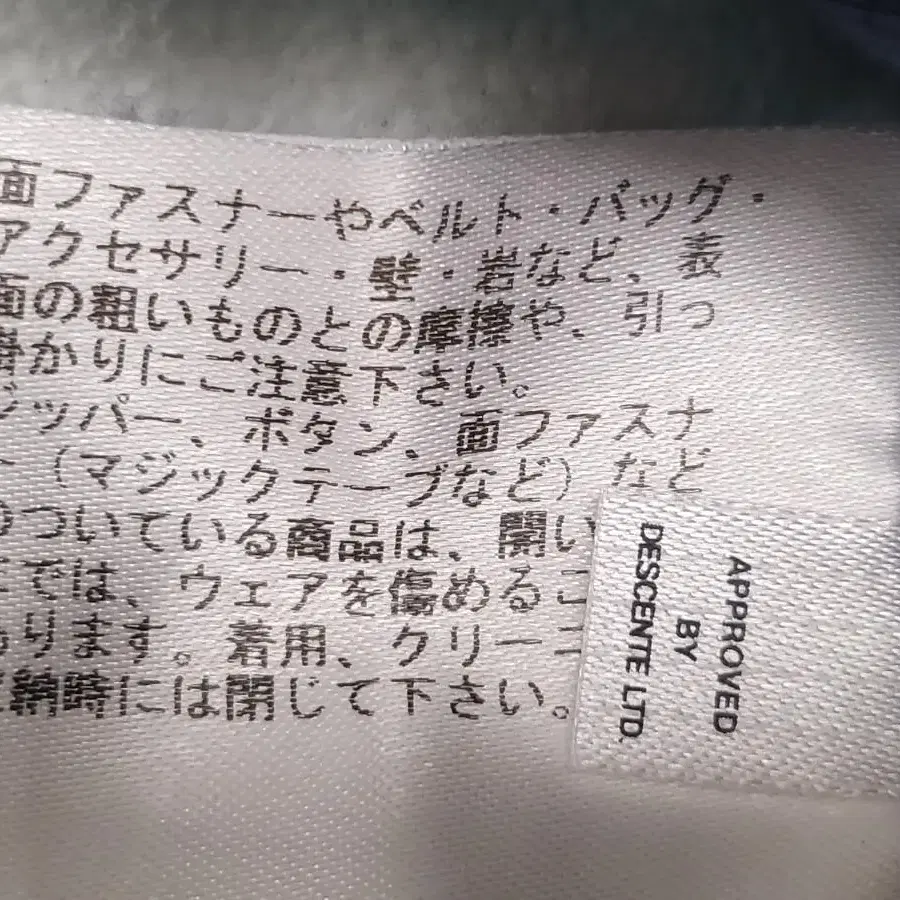 面ファスナーやベルト・バッグ・
アクセサリー・壁・岩など、表
面の粗いものとの摩擦や、引っ
掛かりにご注意下さい。
ジッパー、ボタン、面ファスナ
ー（マジックテープなど）など
のついている商品は、開い
では、ウェアを傷めるこ
ります。着用、クリーニ
納時には閉じて下さい。
APPROVED
BY
DESCENTE LTD.